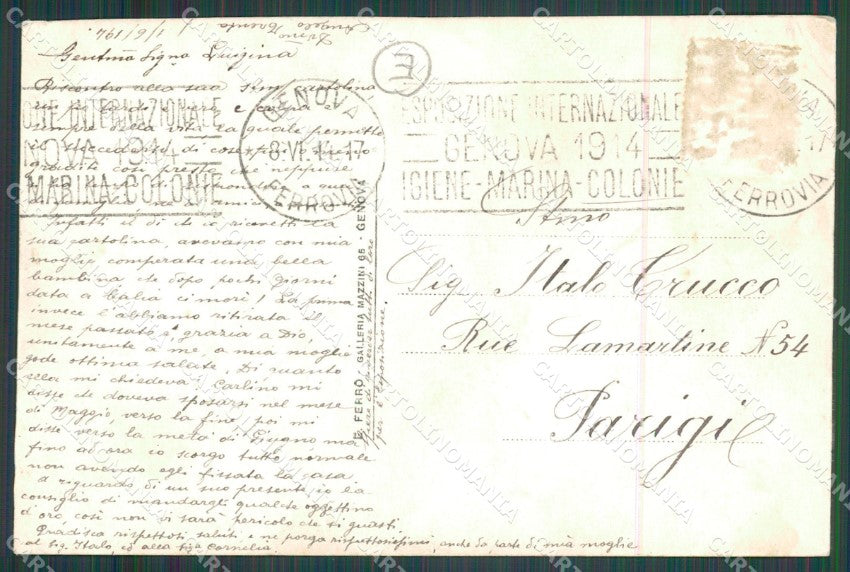 Genova 1/6/914
Angelo Trenta
Gentma Signa Luigina
Riscontro alla sua cartolina
sempre della vita la quale permette
il succedersi di cose
così presto che neppure
Infatti il dì che io ricevetti la
sua cartolina, avevamo con mia
moglie comperata una bella
bambina che dopo pochi giorni
data a balia ci morì! La prima
invece l'abbiamo ritirata il
mese passato e, grazia a Dio,
unitamente a me, a mia moglie
gode ottima salute. Di quanto
ella mi chiedeva, Carlino mi
disse che doveva sposarsi nel mese
di Maggio, verso la fine, poi mi
disse verso la metà di Giugno ma
fino ad ora io scorgo tutto normale
non avendo egli fissata la casa.
A riguardo di un suo presente, io la
consiglio di mandargli qualche oggettino
d'oro, così non vi sarà pericolo che si guasti.
Gradisca rispettosi saluti, e ne porga rispettosissimi, anche da parte di mia moglie
al Sig. Italo, ed alla Siga Cornelia.
per l'Esposizione.
E. FERRO - GALLERIA MAZZINI 65 - GENOVA
E
ONE INTERNAZIONALE
NOVA 1914
MARINA-COLONIE
GENOVA
8.VI.14-17
FERROVIA
ESPOSIZIONE INTERNAZIONALE
GENOVA 1914
IGIENE-MARINA-COLONIE
17
FERROVIA
Stmo
Sig. Italo Crucco
Rue Lamartine N 54
Parigi
CARTOLINOMANIA